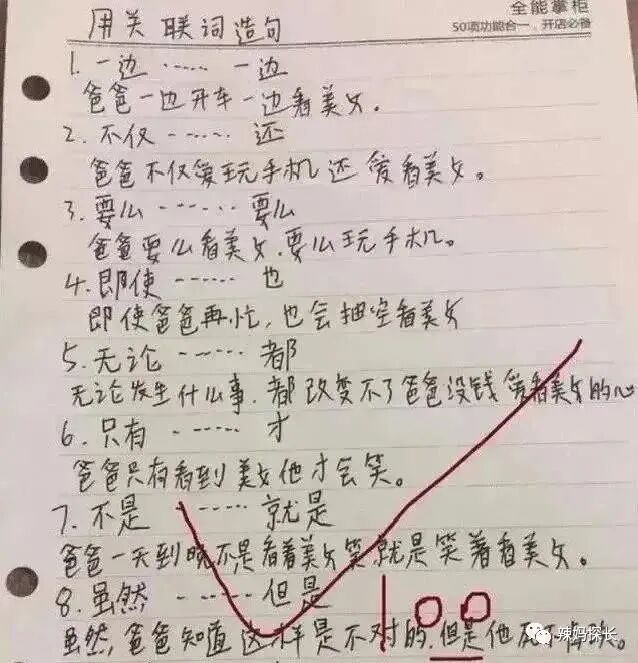 全能掌柜
50项功能合一，开店必备
用关联词造句
1.一边……一边
爸爸一边开车一边看美女.
2.不仅……还
爸爸不仅爱玩手机还爱看美女。
3.要么……要么
爸爸要么看美女.要么玩手机。
4.即使……也
即使爸爸再忙,也会抽空看美女
5.无论……都
无论发生什么事.都改变不了爸爸没钱爱看美女的心
6.只有……才
爸爸只有看到美女他才会笑。
7.不是……就是
爸爸一天到晚不是看着美女笑就是笑着看美女。
8.虽然……但是
虽然,爸爸知道这样是不对的,但是他
100
辣妈探长